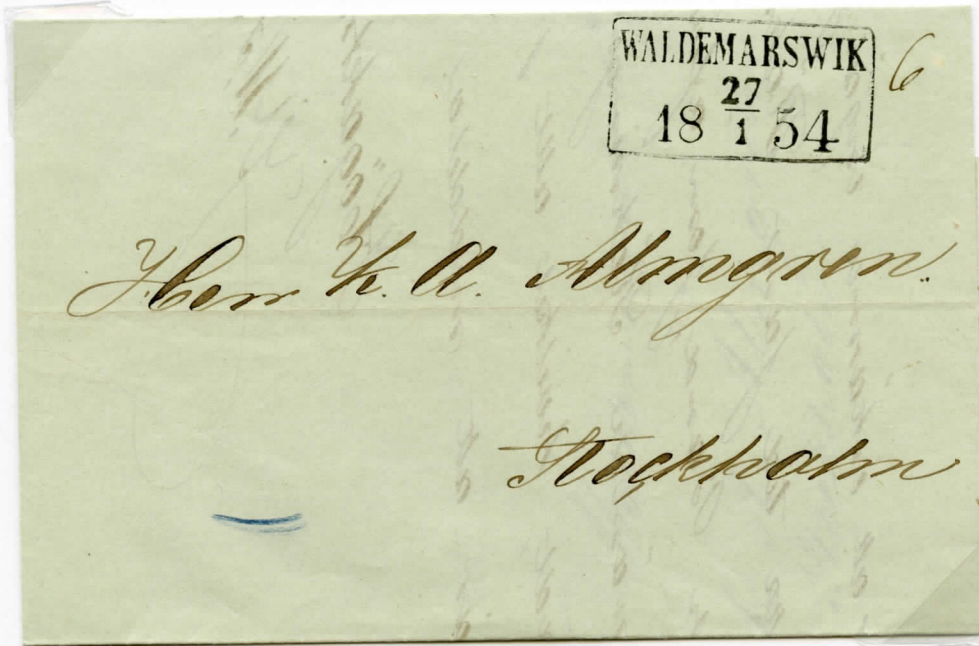 WALDEMARSWIK
27
18 1 54
6
Herr K. A. Almgren.
Stockholm